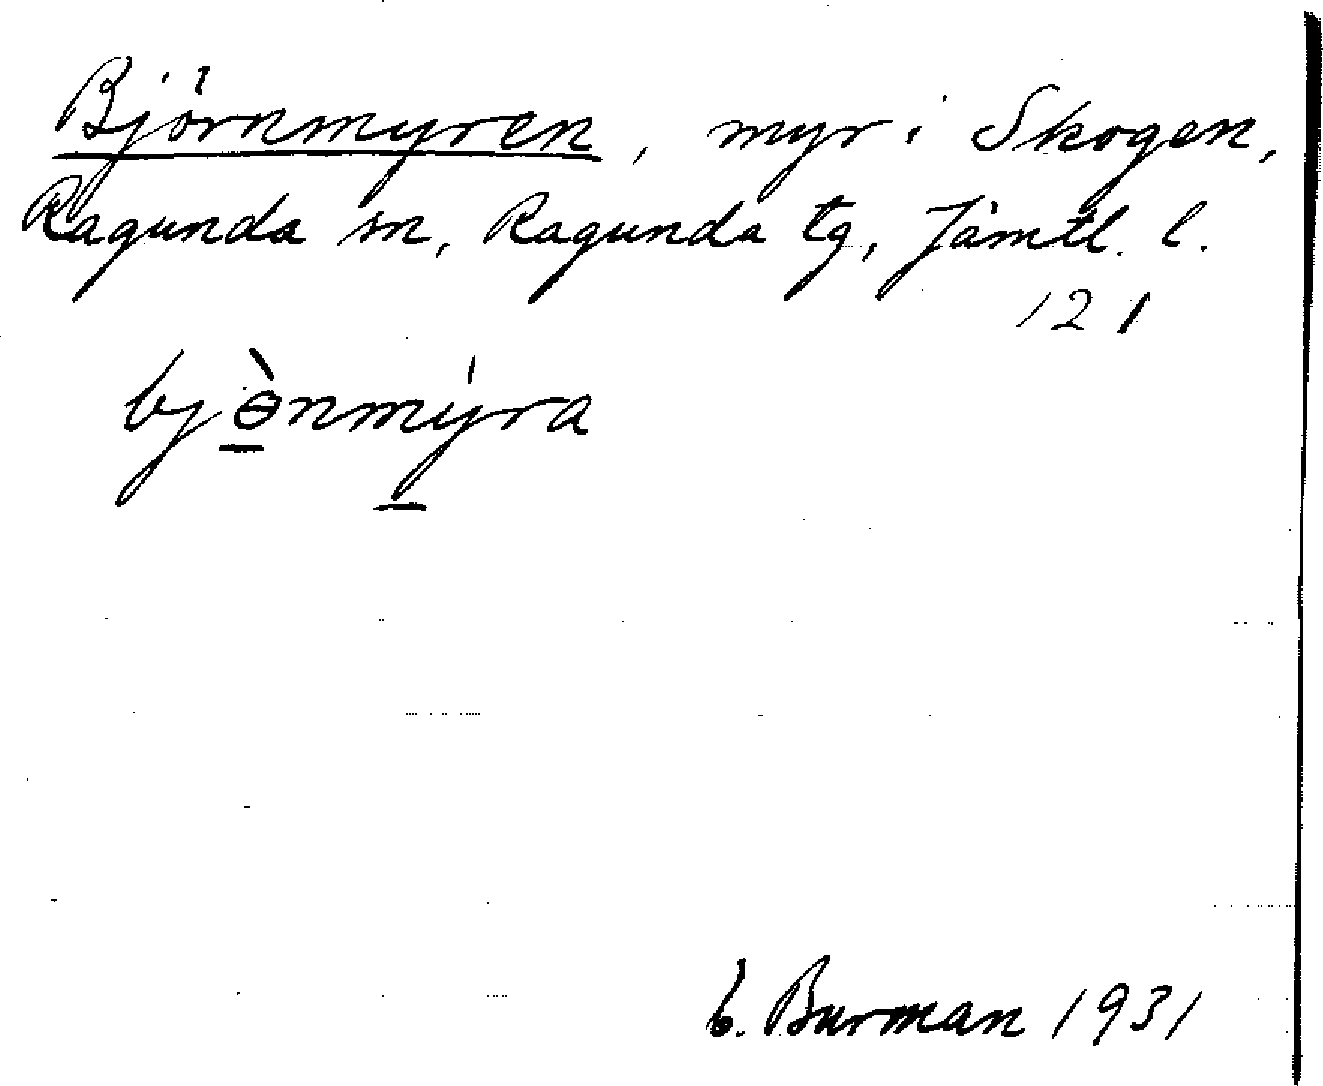 Björnmyren, myr i Skogen,
Ragunda sn, Ragunda tg, Jämtl. l.
121
bjɵ̠̀nmý̠ra
Burman 1931